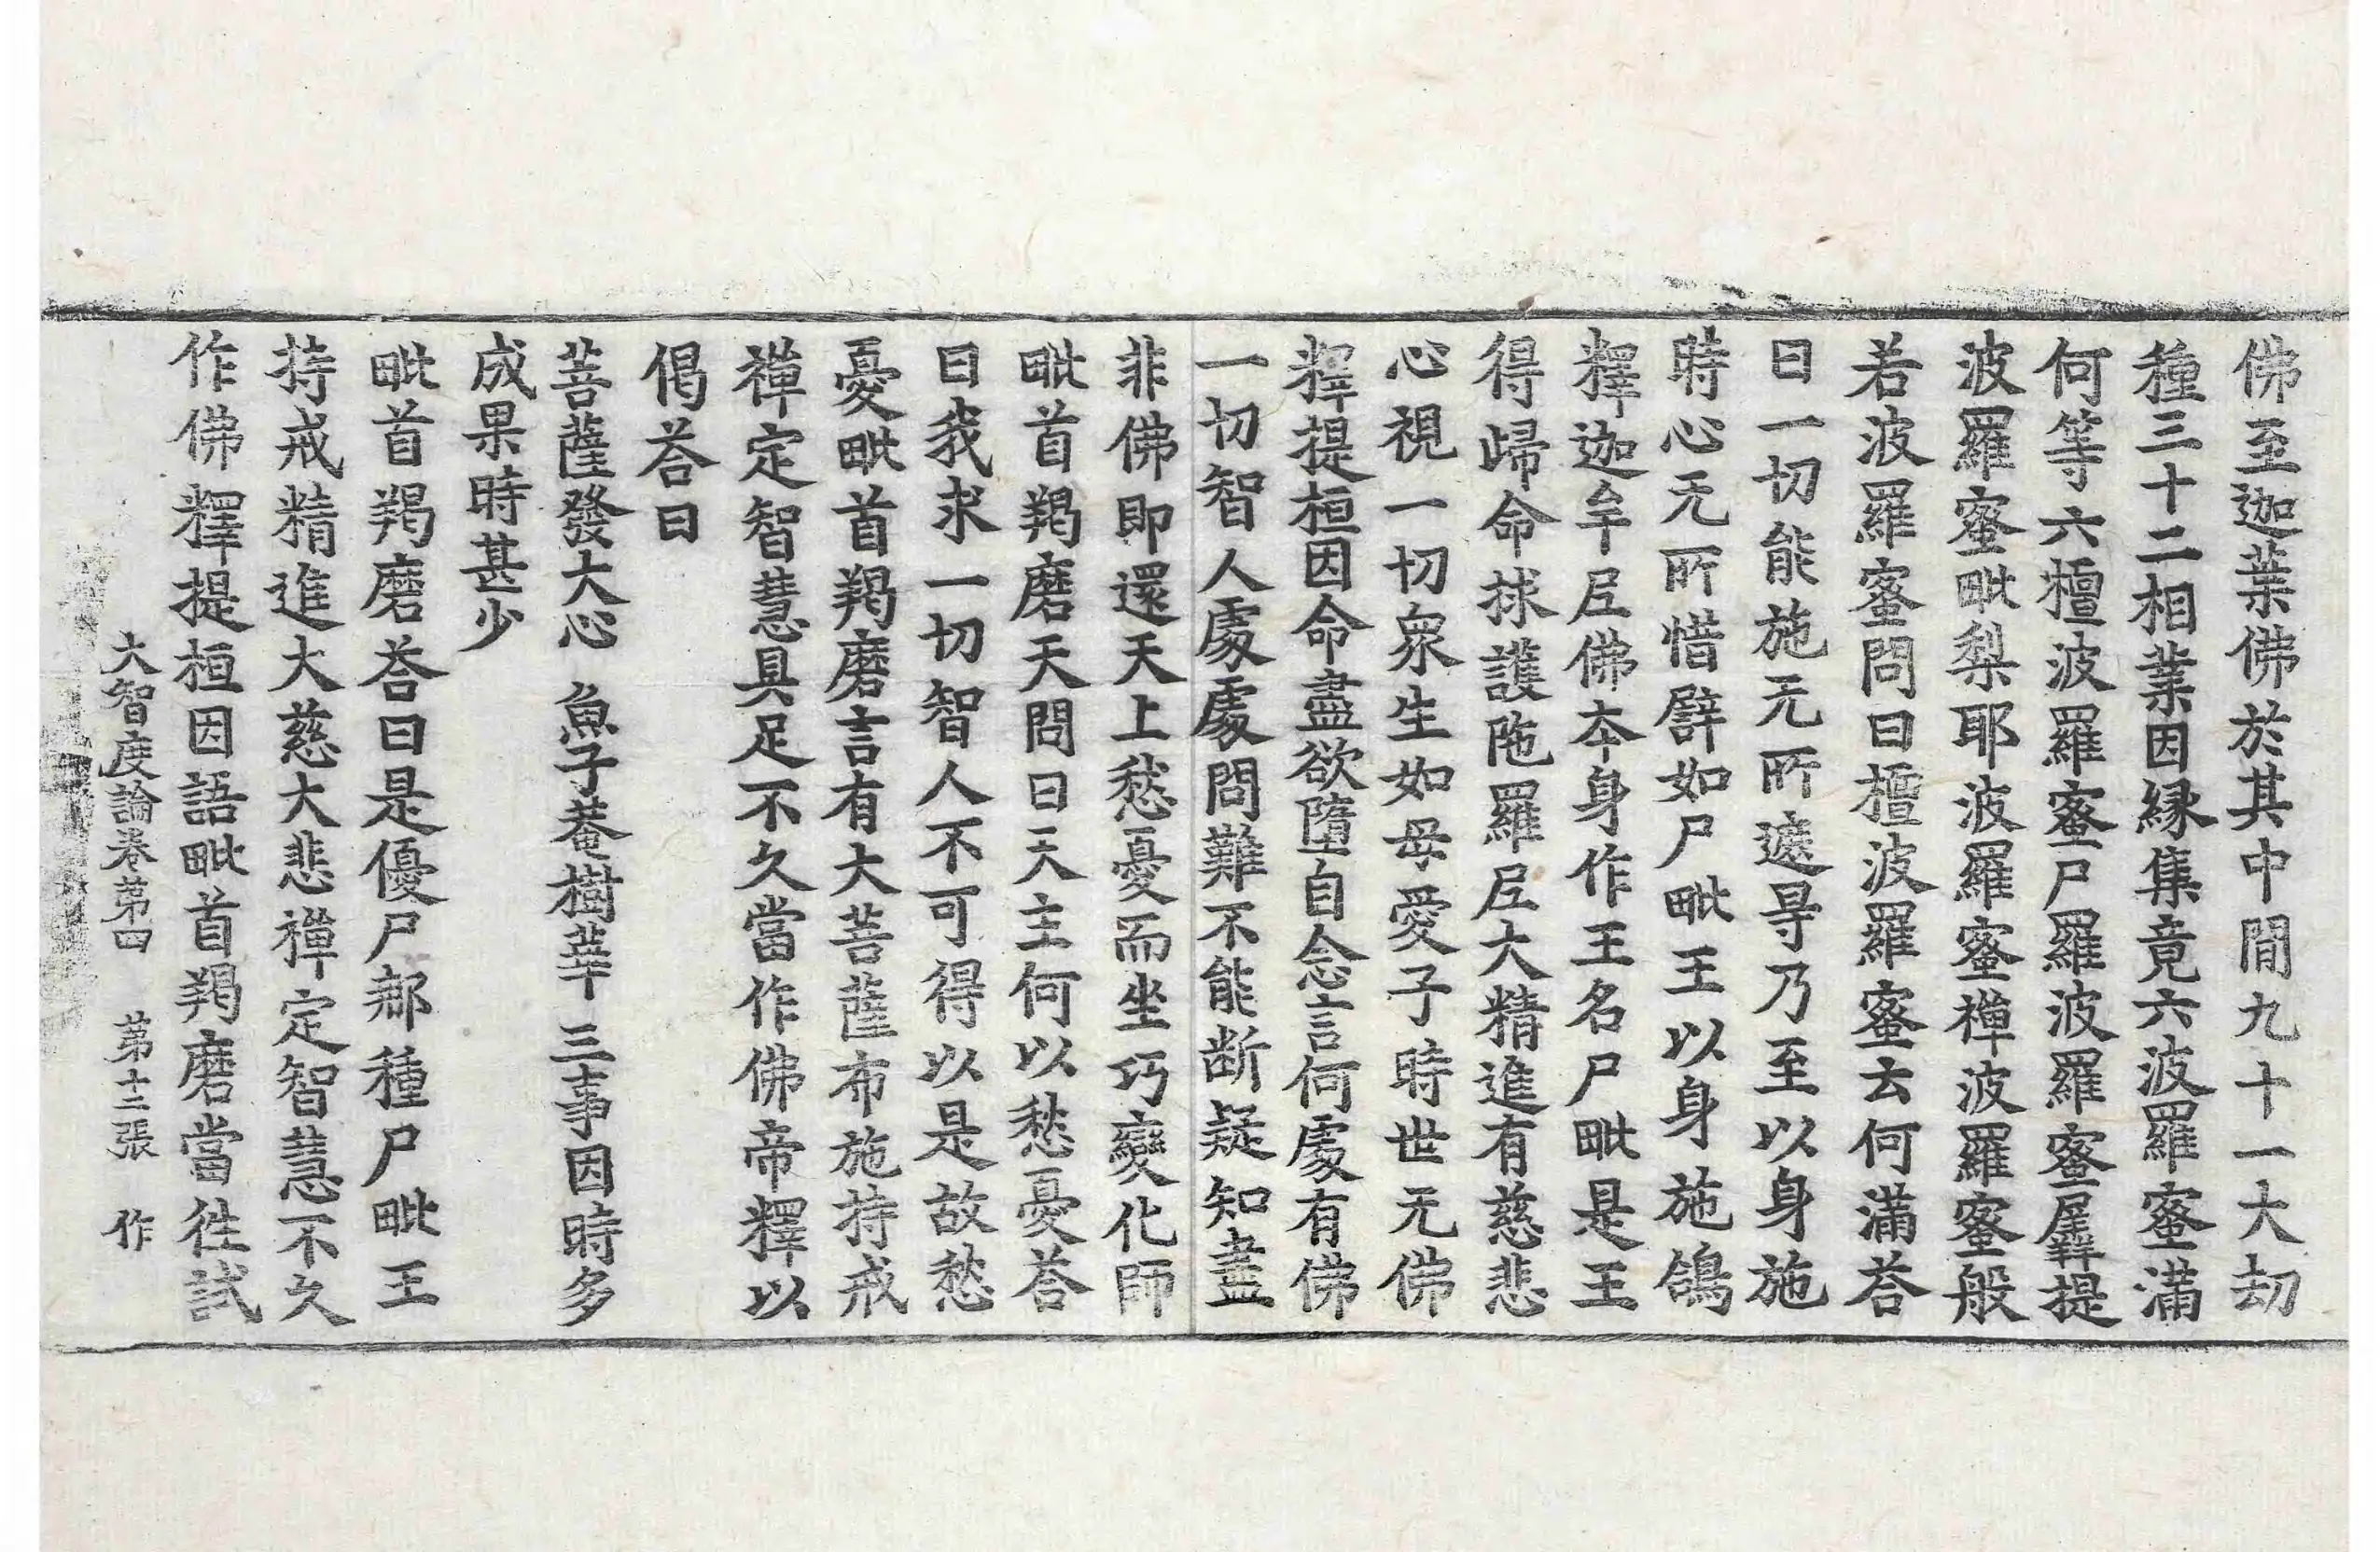 佛至迦葉佛於其中間九十一大劫
種三十二相業因緣集竟六波羅蜜滿
何等六檀波羅蜜尸羅波羅蜜羼提
波羅蜜毗梨耶波羅蜜禪波羅蜜般
若波羅蜜問曰檀波羅蜜云何滿荅
曰一切能施无所遮㝵乃至以身施
時心无所惜譬如尸毗王以身施鴿
釋迦牟尼佛夲身作王名尸毗是王
得歸命救護陁羅尼大精進有慈悲
心視一切衆生如母愛子時世无佛
釋提桓因命盡欲墮自念言何處有佛
一切智人處處問難不能断疑知盡
非佛即還天上愁憂而坐巧變化師
毗首羯磨天問曰天主何以愁憂荅
曰我求一切智人不可得以是故愁
憂毗首羯磨言有大菩薩布施持戒
禪定智慧具足不久當作佛帝釋以
偈荅曰
菩薩發大心 魚子菴樹華 三事因時多
成果時甚少
毗首羯磨荅曰是優尸郍種尸毗王
持戒精進大慈大悲禪定智慧不久
作佛釋提桓因語毗首羯磨當往試
大智度論卷第四 第十二張 作